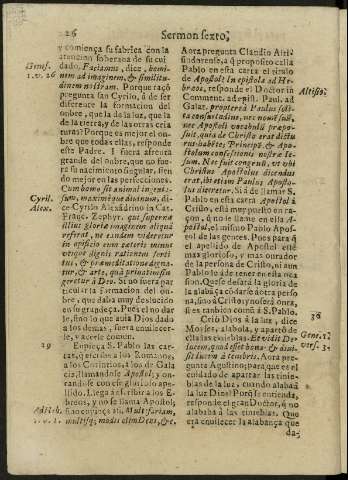 26
Sermon sexto,
y comiença su fabrica con la
atencion soberana de su cui
dado, Faciamus, dice, homi-
nem ad imaginem, & similitu-
dinem nostram. Porque raçõ
pregunta san Cyrilo, à de ser
diference la formacion del
onbre, que la de la luz, que la
de la tierra, y de las otras cria
turas? Porque es mejor el on-
bre que todas ellas, responde
este Padre. I fuera afrenta
grande del onbre, que no fue-
ra su nacimiento singular, sien
do mejor en las perfecciones.
Cum homo sit animal ingentis-
sum, maximèque divinum, di-
ce Cyrilo Alexandrino in Cat.
Françc. Zephyr. que supernæ
illius gloriæ imaginem digniùs
referat, ne eandem videretur
in opificio cum cæteris minus
utique dignis rationem sorti
tus, & præmeditatione digna-
tur, & arte, quà privatim fin-
geretur à Deo. Si no fuera par
ticular la formacion del on-
bre, que daba muy deslucido
en su grandeça. Pues el no dar
le, sino lo que avia Dios dado
a los demas, fuera envilecer-
le, y acerle comun.
Enpieça S. Pablo las car-
tas, q̃ escribe a los Romanos,
a los Corintios, a los de Gala
cia, llamandose Apostol; y on-
randose con ese glorioso ape-
llido. Llega a escribir a los E-
breos, y no se llama Apostol,
sino comiença asi. Multifariam,
multisq; modis olim Deus, &c.
Genes.
1. v. 26
Cyril.
Alex.
29
Ad Heb.
1. v. 1.
Aora pregunta Claudio Alti-
sidorense, a q̃ proposito calla
Pablo en esta carta el titulo
de Apostol? In epistola ad He-
bræos, responde el Doctor in
Comment. ad epist. Paul. ad
Galat. prætereà Paulus soli-
ta consuetudine, nec nomẽ suũ,
nec Apostoli vocabulũ præpo-
suit, quia de Christo erat dictu
rus habẽtes Principẽ, & Apo-
stolum confessionis nostræ Ie-
sum. Nec fuit congruũ, vt ubi
Christus Apostolus dicendus
erat, ibi etiam Paulus Aposto-
lus diceretur. Si à de llamar à
S. Pablo en esta carta Apostol à
Cristo, està muy puesto en ra-
çon, q̃ no se llame en ella A-
postol, el mismo Pablo Apos-
tol de las gentes. Pues para q̃
el apellido de Apostol estè
mas glorioso, y mas ourador
de la persona de Cristo, ni aun
Pablo lo à de tener en esta oca
sion. Que se desdora la gloria de
la alabaça comunicada a otra perso
na, sino à Cristo; y no serà onra,
si es tanbien comũ à S. Pablo.
Crio Dios la luz, dice
Moises, alabola, y apartò de
ella las tinieblas. Et vidit De
lucem, quod esset bona, & divi-
sit lucem à tenebris. Aora pre-
gunta Agustino, para que es el
cuidado de apartar las tinie-
blas de la luz, quando alabaua
la luz Dios? Porq̃ se entienda,
responde el gran Doctor, q̃ no
alababa à las tinieblas. Que
era envilecer la alabança que
da-
Altisio.
30
Genes. 1.
vers. 3.